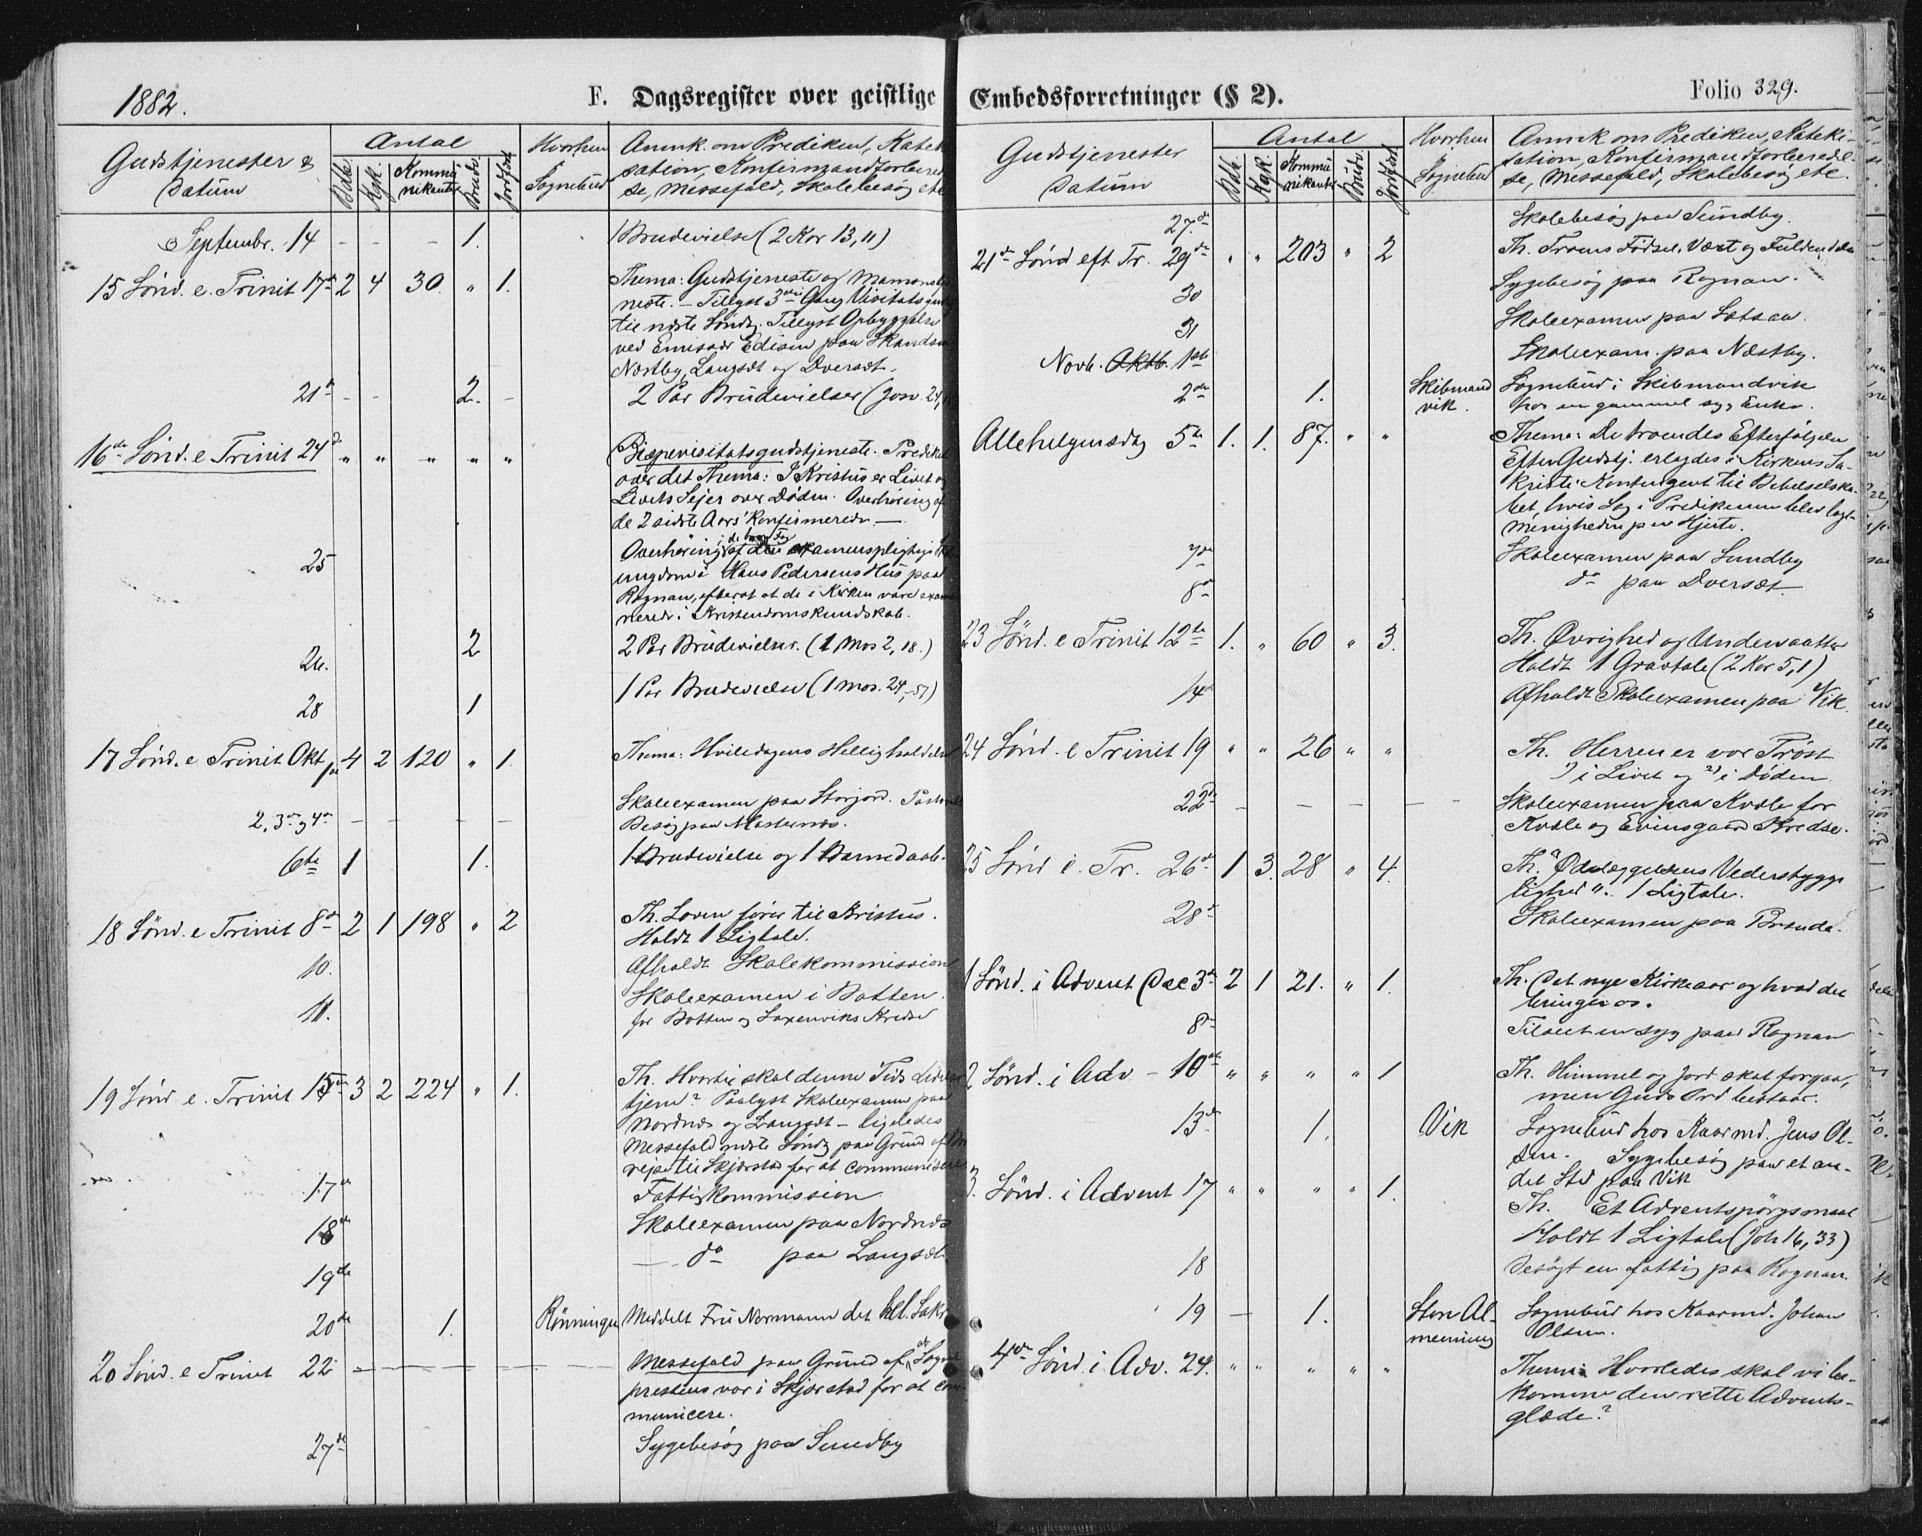 1882.
F. Dagsregister over geistlige
Gudstjenester &
Datum
Antal
Kommu
nikanter
Hvorhen
Sognebud
Anmk. om Prediken, Kateki
sation, Konfirmandforberedel
se, Messefald, Skolebesøg etc
Septembr. 14 - - - 1. 1 Brudevielse (2 Kor 13,11)
15 Sønd. e. Trinit 17de 2 4 30 " 1. Thema: Gudstjeneste og Mamonstje
neste. - Tillyst 3die Gang Visitatsgud
til næste Søndag. Tillyst Opbyggelse
ved Emissær Edisen paa
Næstby, Langsæt og Dversæt.
21de - - 2. - 2 Par Brudevielser
16de Sønd. e Trinit 24de " " " " " Bispevisitatsgudstjeneste. Prediket
over det Thema: I Kristus er Livet og
Livets Sejer over Døden. Overhøring af
de 2 sidste Aars' Konfirmerede —
25 Overhøring af den examenspligtige
ungdom i Hans Pedersens Hus paa
Rognan, efterat de i Kirken vare exami
nerede i Kristendomskundskab.
26. 2 2 Par Brudevielser. (1 Mos 2,18.)
28 1 1 Par Brudevielse (1 Mos. 24,-51)
17 Sønd. e Trinit Okt 1ste 4 2 120 " 1 Thema: Hviledagens Helligholdelse
2, 3de og 4de - - - - - Skoleexamen paa Storjord.
Besøg paa
6te 1 1. 1 Brudevielse og 1 Barnedaab.
18 Sønd. e Trinit 8de 2 1 198 " 2 Th. Loven fører til Kristus.
Holdt 1 Ligtale.
10. Afholdt Skolekommission
11. Skoleexamen i Botten
for Botten og Saxenviks Kredse
19 Sønd e. Trinit 15de 3 2 224 " 1. Th. Hvortil skal denne Tids Lidelser
tjene? Paalyst Skoleexamen paa
Nordnæs og Langsæt - ligeledes
Messefald næste Søndag paa Grund af
rejse til Skjerstad for at communisere
17de Fattigkommission
18de Skoleexamen paa Nordnæs
19de — do paa Langsæt
20de 1. Rønningen Meddelt Fru Normann det hel. Sakr
20 Sønd. e Trinit 22 - - - - - Messefald paa Grund af, at Sogne
presten var i Skjerstad for at com
municere.
27de Sygebesøg paa Sundby
Embedsforretninger (§ 2).
Folio 329.
Gudstjenester
Datum
Antal
Kommu
nikanter
Hvorhen
Sognebud
Anmk om Prediken, Kateki
sation, Konfirmandforberedel
se, Messefald, Skolebesøg etc.
27.de Skolebesøg paa Sundby.
21de Sønd eft Tr. 29de " " 203 " 2 Th. Troens Fødsel, Væxt og Fuldendelse
30 Sygebesøg paa Rognan.
31 Skoleexamen paa Sætsaa.
Novb. Oktb. 1ste Skoleexam. paa Næstby.
2de 1. Skibmand
vik. Sognebud i Skibmandvik
hos en gammel syg Enke.
Allehelgensdag 5te 1. 1. 87. " " Thema: De troendes Efterfølgelse
Efter Gudstj. erlagdes i Kirkens Sa-
kristi Kontingent til Bibelselska-
bet, hvis Sag i Predikenen blev lagt
Menigheden paa Hjerte.
7de Skoleexamen paa Sundby
8de do paa Dversæt.
23 Sønd. e Trinit 12te 1. " 60 " 3. Th. Øvrighed og Undersaatter
Holdt 1 Gravtale (2 Kor 5,1)
14de Afholdt Skoleexamen paa Vik
24 Sønd. e Trinit 19 " " 26 " " Th. Herren er vor Trøst
1) i Livet og 2) i Døden
22de - - - - - Skoleexamen paa Kvæle for
Kvæle og Evensgaard Kredse.
25 Sønd e. Tr. 26de 1 3. 28 " 4. Th. "Ødelæggelsens Vederstygge
lighed". 1 Ligtale.
28de Skoleexamen paa Brænde.
1 Sønd. i Advent Dec 3de 2 1 21. " 1. Th. Det nye Kirkeaar og hvad det
bringer os.
8de Tilseet en syg paa Rognan
2 Sønd. i Adv - 10de " " " " 1 Th. Himmel og Jord skal forgaa,
men Guds Ord bestaar.
13de 1. Vik Sognebud hos Kaarmd. Jens Ol-
sen. Sygebesøg paa et an-
det Sted paa Vik
3. Sønd. i Advent 17 " " " " 1. Th. Et Adventspørgsmaal
Holdt 1 Ligtale (Joh 16,33)
18 Besøgt en fattig paa Rognan.
19 - 1. Stor Al-
menning Sognebud hos Kaarmd. Johan
Olsen.
4de Sønd. i Adv. 24. " " " " " Thema: Hvorledes skal vi be-
komme den rette Advents-
glæde?